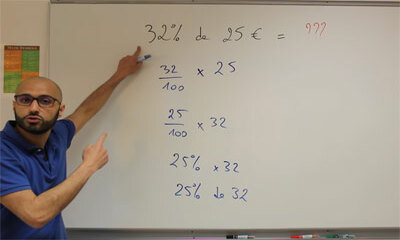 32% de 25 € = ???
32/100 x 25
25/100 x 32
25% x 32
25% de 32